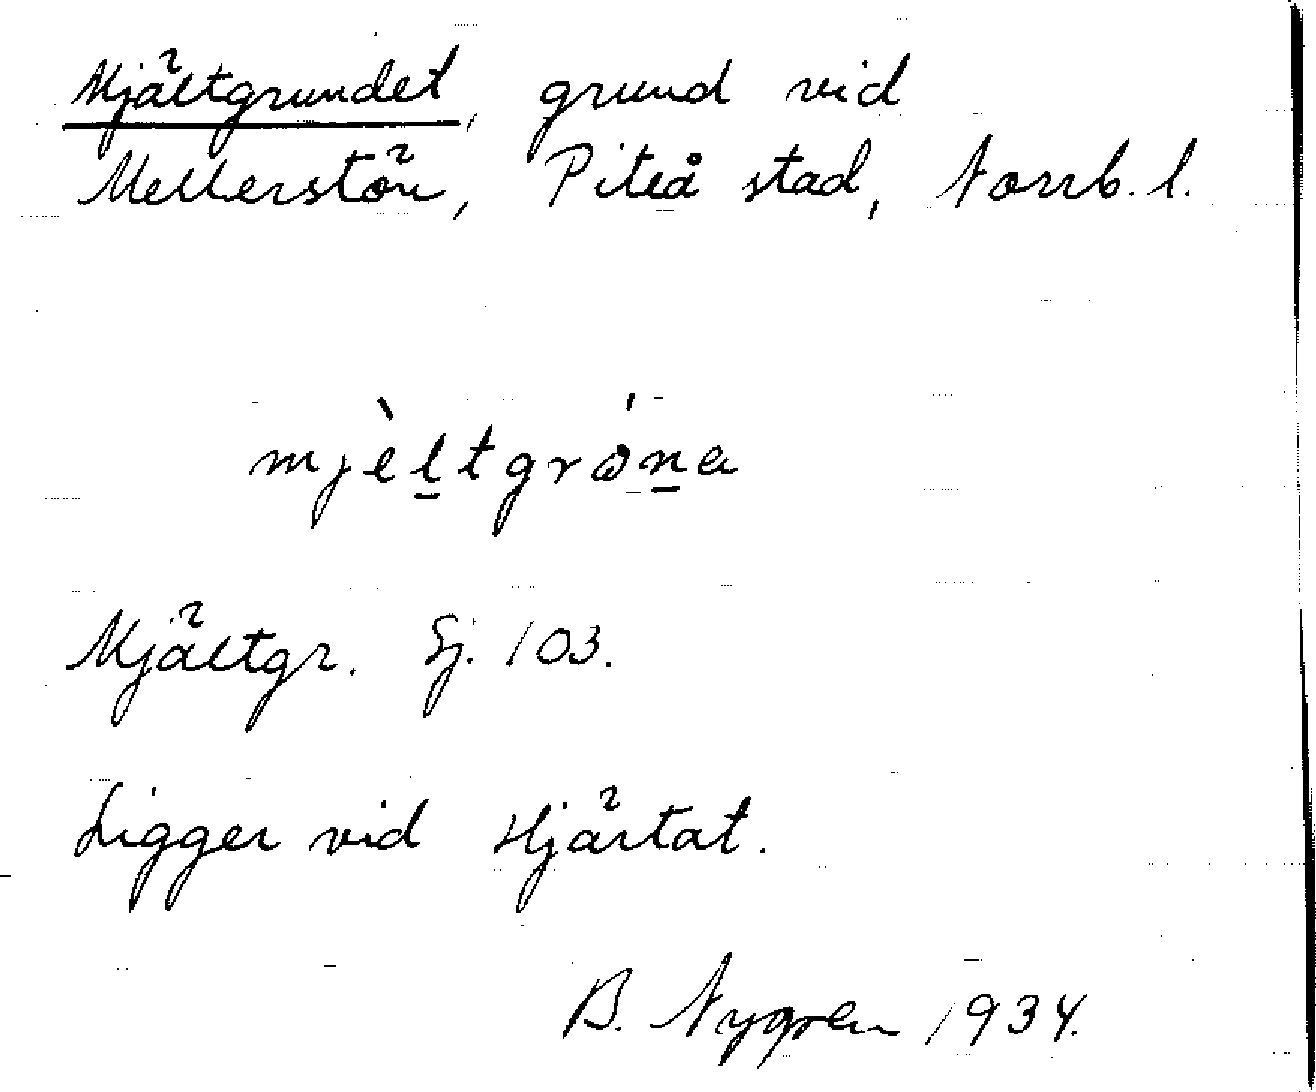 Mjältgrundet, grund vid
Mellerstön, Piteå stad, Norrb. l.
mjèl̲tgrón̲a
Mjältgr. Sj. 103.
Ligger vid Hjärtat.
B. Nygren 1934.